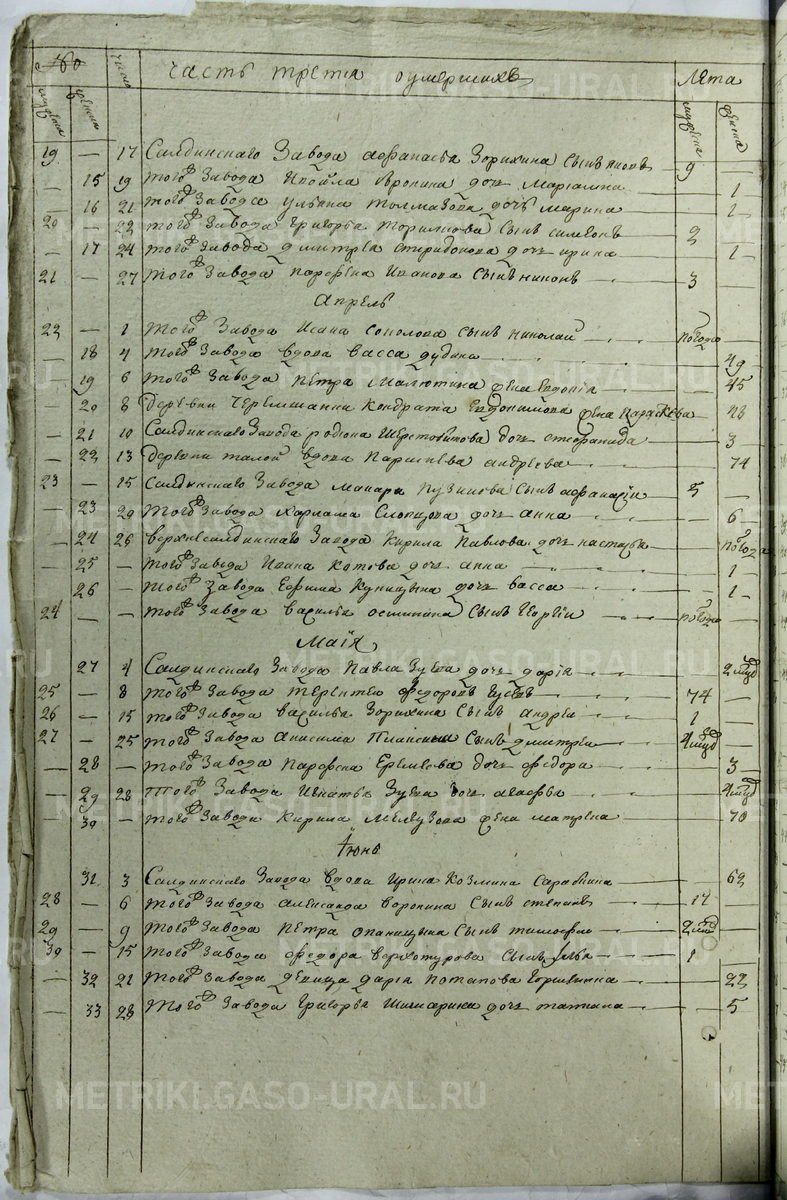 № число часть третія о умершихъ Лѣта
мужеска женска мужеска женска
19 — 17 Салдинскаго Завода Афанасья Зорихина сынъ 9
— 15 19 того Завода доч 1
— 16 21 того Завода Толмазова дочь марина 1
20 — 22 того Завода Григорья сынъ симеонъ 2
— 17 24 того Завода дмитрея спиридонова доч ирина 1
21 — 27 того Завода парфена Иванова сынъ никонъ 3
Апрель
22 — 1 того Завода Исака Соколова сынъ николай полгода —
— 18 4 того Завода вдова васса — 49
— 19 6 того Завода петра Малютина жена евдокія — 45
— 20 8 деревни Черемшанки Кондрата Евдокимова жена — 48
— 21 10 Салдинскаго Завода родиона Шерстобитова доч стефанида — 3
— 22 13 деревни вдова андреева — 74
23 — 15 Салдинскаго Завода макара сынъ афанасіи 5 —
— 23 20 того Завода харлама Слепцова доч анна — 6
— 24 26 верхнесалдинскаго Завода Кирила Павлова доч настасья — полгода
— 25 — того Завода Ивана Котова доч анна — 1
— 26 — того Завода Ефима Куницына доч васса — 1
24 — — того Завода василья сынъ Георгіи полгода —
Маія
— 27 4 Салдинскаго Завода Павла Зуева доч дарія — 2 мцд
25 — 8 того Завода терентей федоровъ 74 —
26 — 15 того Завода василья Зорихина сынъ андреи 1 —
27 — 25 того Завода анисима сынъ дмитреи 4 мцд —
— 28 — того Завода парфена доч федора — 3
— 29 28 того Завода Игнатья Зуева доч агафья — 4 мцд
— 30 — того Завода Кирила жена матрена — 70
Іюнь
— 31 3 Салдинскаго Завода вдова Ирина Козмина — 62
28 — 6 того Завода александра воронина сынъ степанъ 17 —
29 — 9 того Завода петра опаницына сынъ тимофеи 2 мцд —
30 — 15 того Завода федора верхотурова сынъ 1 —
— 32 21 того Завода девица дарія потапова — 22
— 33 28 того Завода Григорья Шишарина доч татиана — 5
METRIKI.GASO-URAL.RU